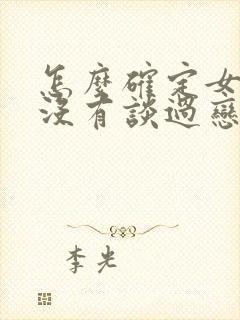 怎麼確定女
沒有談過戀
李光